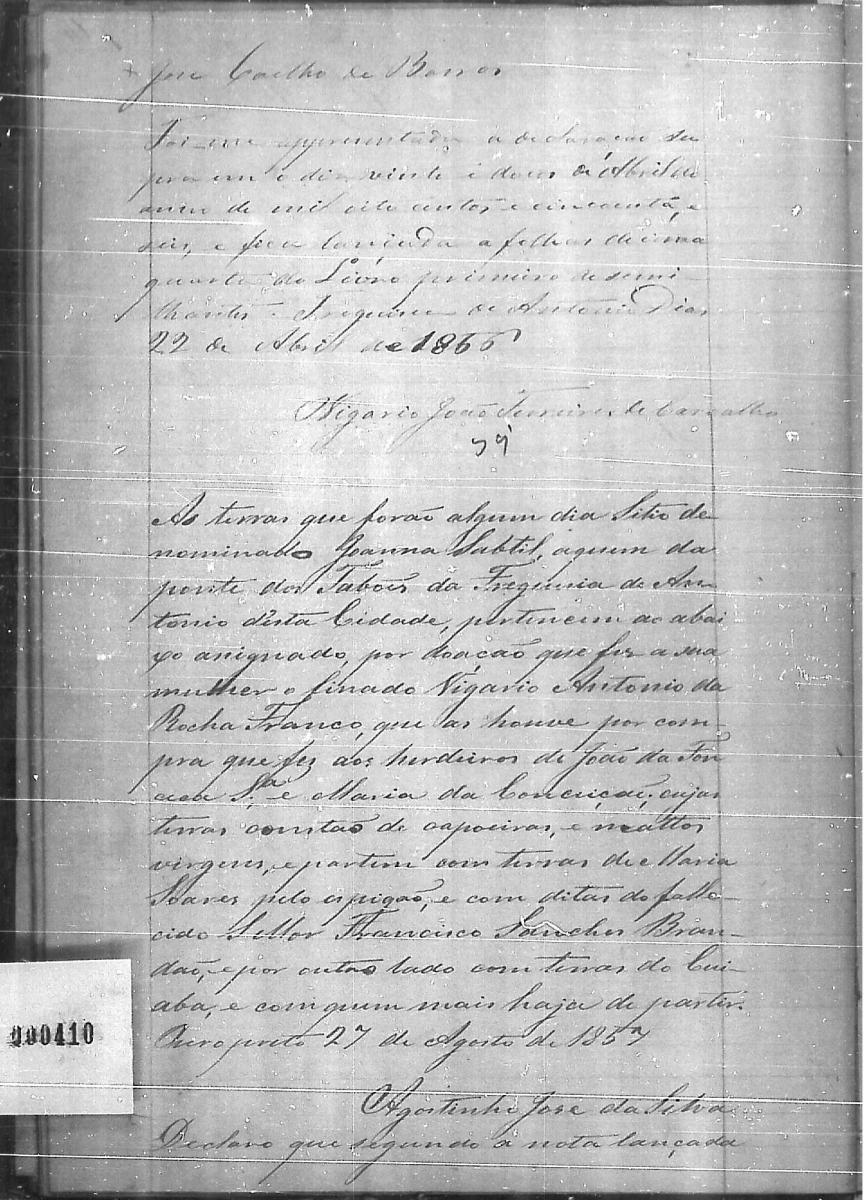 Jose Coelho de Barros
Foi-me appresentada a declaração su
pra em o dia vinte e dous de Abril do
anno de mil oito centos e cincoenta, e
seis, e fica lançada a folhas decima
quarta do Livro primeiro de semi-
lhantes. Freguesia de Antonio Dias
22 de Abril de 1856
Vigario João Ferreira de Carvalho
As terras que forão algum dia Sitio de-
nominado Joanna Sabtil, aquem da
ponte dos Taboões da Freguesia de An-
tonio d'esta Cidade, pertincem ao abai-
xo asignado, por doação que fez a sua
mulher o finado Vigario Antonio da
Rocha Franco, que as houve por com-
pra que fez aos herdeiros de João da Fon
ceca Sa. e Maria da Conceição, cujas
terras constão de capoeiras, e mattos
virgens, e partem com terras de Maria
Soares pelo espigão, e com ditas do falle-
cido Francisco Sanches Bran-
dão, e por outro lado com terras do Cui-
aba, e com quem mais haja de partir.
Ouro preto 27 de Agosto de 1857
Agostinho Jose da Silva
Declaro que segundo a nota lançada
000410